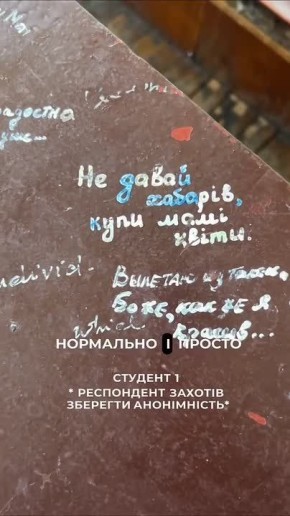 Не давай
хабарів,
купи мамі
квіти.
individ-
Вылетаю из тачки,
Боже, как же я
красив...
which
НОРМАЛЬНО І ПРОСТО
СТУДЕНТ 1
* РЕСПОНДЕНТ ЗАХОТІВ
ЗБЕРЕГТИ АНОНІМНІСТЬ*